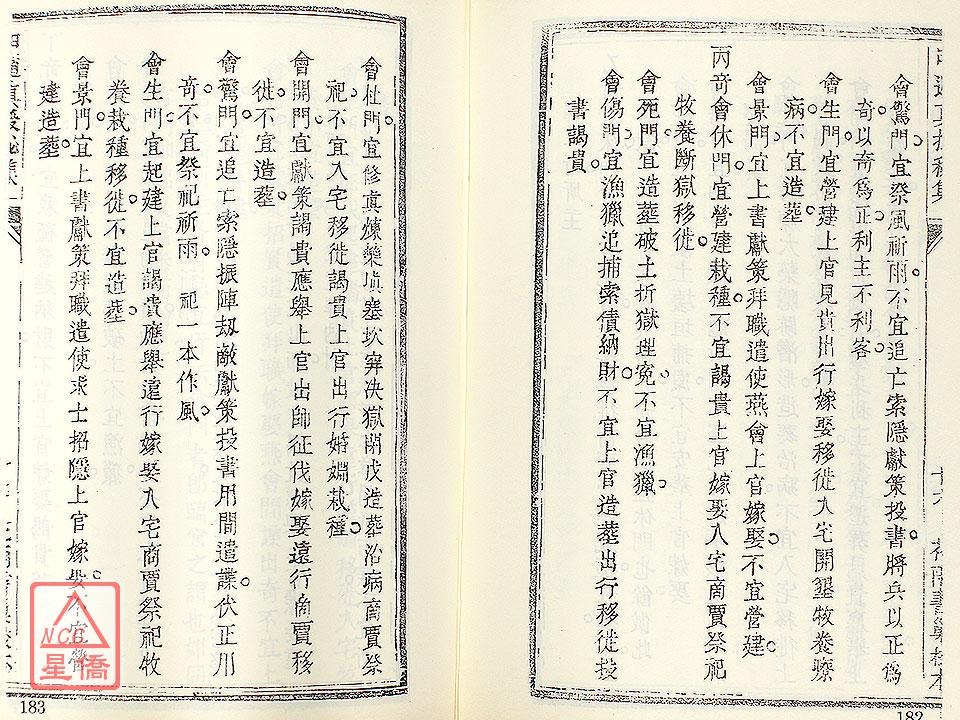 會驚門宜祭風祈雨不宜追亡索隱獻策投書將兵以正爲
奇以奇爲正利主不利客
會生門宜營建上官見貴出行嫁娶移徙入宅開墾牧養療
病不宜造塟
會景門宜上書獻策拜職遣使燕會上官嫁娶不宜營建
丙奇會休門宜營建栽種不宜謁貴上官嫁娶入宅商賈祭祀
牧養斷獄移徙
會死門宜造塟破土折獄理寃不宜漁獵
會傷門宜漁獵追捕索債納財不宜上官造塟出行移徙技
書謁貴
182
會杜門宜修真煉藥塡塞坎穽决獄閉戊造塟治病商賈祭
祀不宜入宅移徙謁貴上官出行婚姻栽種
會開門宜獻策謁貴應舉上官出師征伐嫁娶遠行商賈移
徙不宜造塟
會驚門宜追亡索隱振陣刼敵獻策投書用間遣諜伏正用
奇不宜祭祀祈雨 祀一本作風
會生門宜起建上官謁貴應舉遠行嫁娶入宅商賈祭祀牧
養栽種移徙不宜造塟
會景門宜上書獻策拜職遣使求士招隱上官嫁娶不宜營
建造塟
183
NCC
星僑